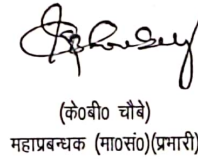 (के०बी० चौबे)
महाप्रबन्धक (मा०सं०)(प्रभारी)